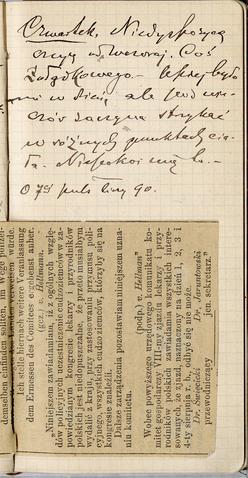 Czwartek. Niedyspozycya
czuję od wczoraj. Coś
żołądkowego — lepiej było
mi w dzień ale pod wie-
czór zaczyna strykać
w różnych punktach cia-
ła. Niepokoi mię to. —
O 7¾ puls 90.
demselben einfinden sollten,
Ich stelle hiernach weitere Veranlassung
dem Ermessen des Comités ergebenst anheim.
(gez.) v. Hellmann.
„Niniejszem zawiadamiam, iż z ogólnych wzglę-
dów policyjnych uczestniczenie cudzoziemców w za-
powiedzianym kongresie lekarzy i przyrodników
polskich jest niedopuszczalne, że przeto musiałbym
wydalić z kraju, przy zastosowaniu przymusu poli-
cyjnego, wszystkich cudzoziemców, którzyby się na
kongresie znaleźli.
Dalsze zarządzenia pozostawiam niniejszem uzna-
niu komitetu.
(podp.) v. Hellmann”
Wobec powyższego urzędowego komunikatu ko-
mitet gospodarczy III-go zjazdu lekarzy i przy-
rodników polskich zawiadamia wszystkich intere-
sowanych, że zjazd, naznaczony na dzień 1, 2, 3 i
4-ty sierpnia r. b., odbyć się nie może.
Dr. Święcicki Dr. Jarnatowski
przewodniczący jen. sekretarz.”